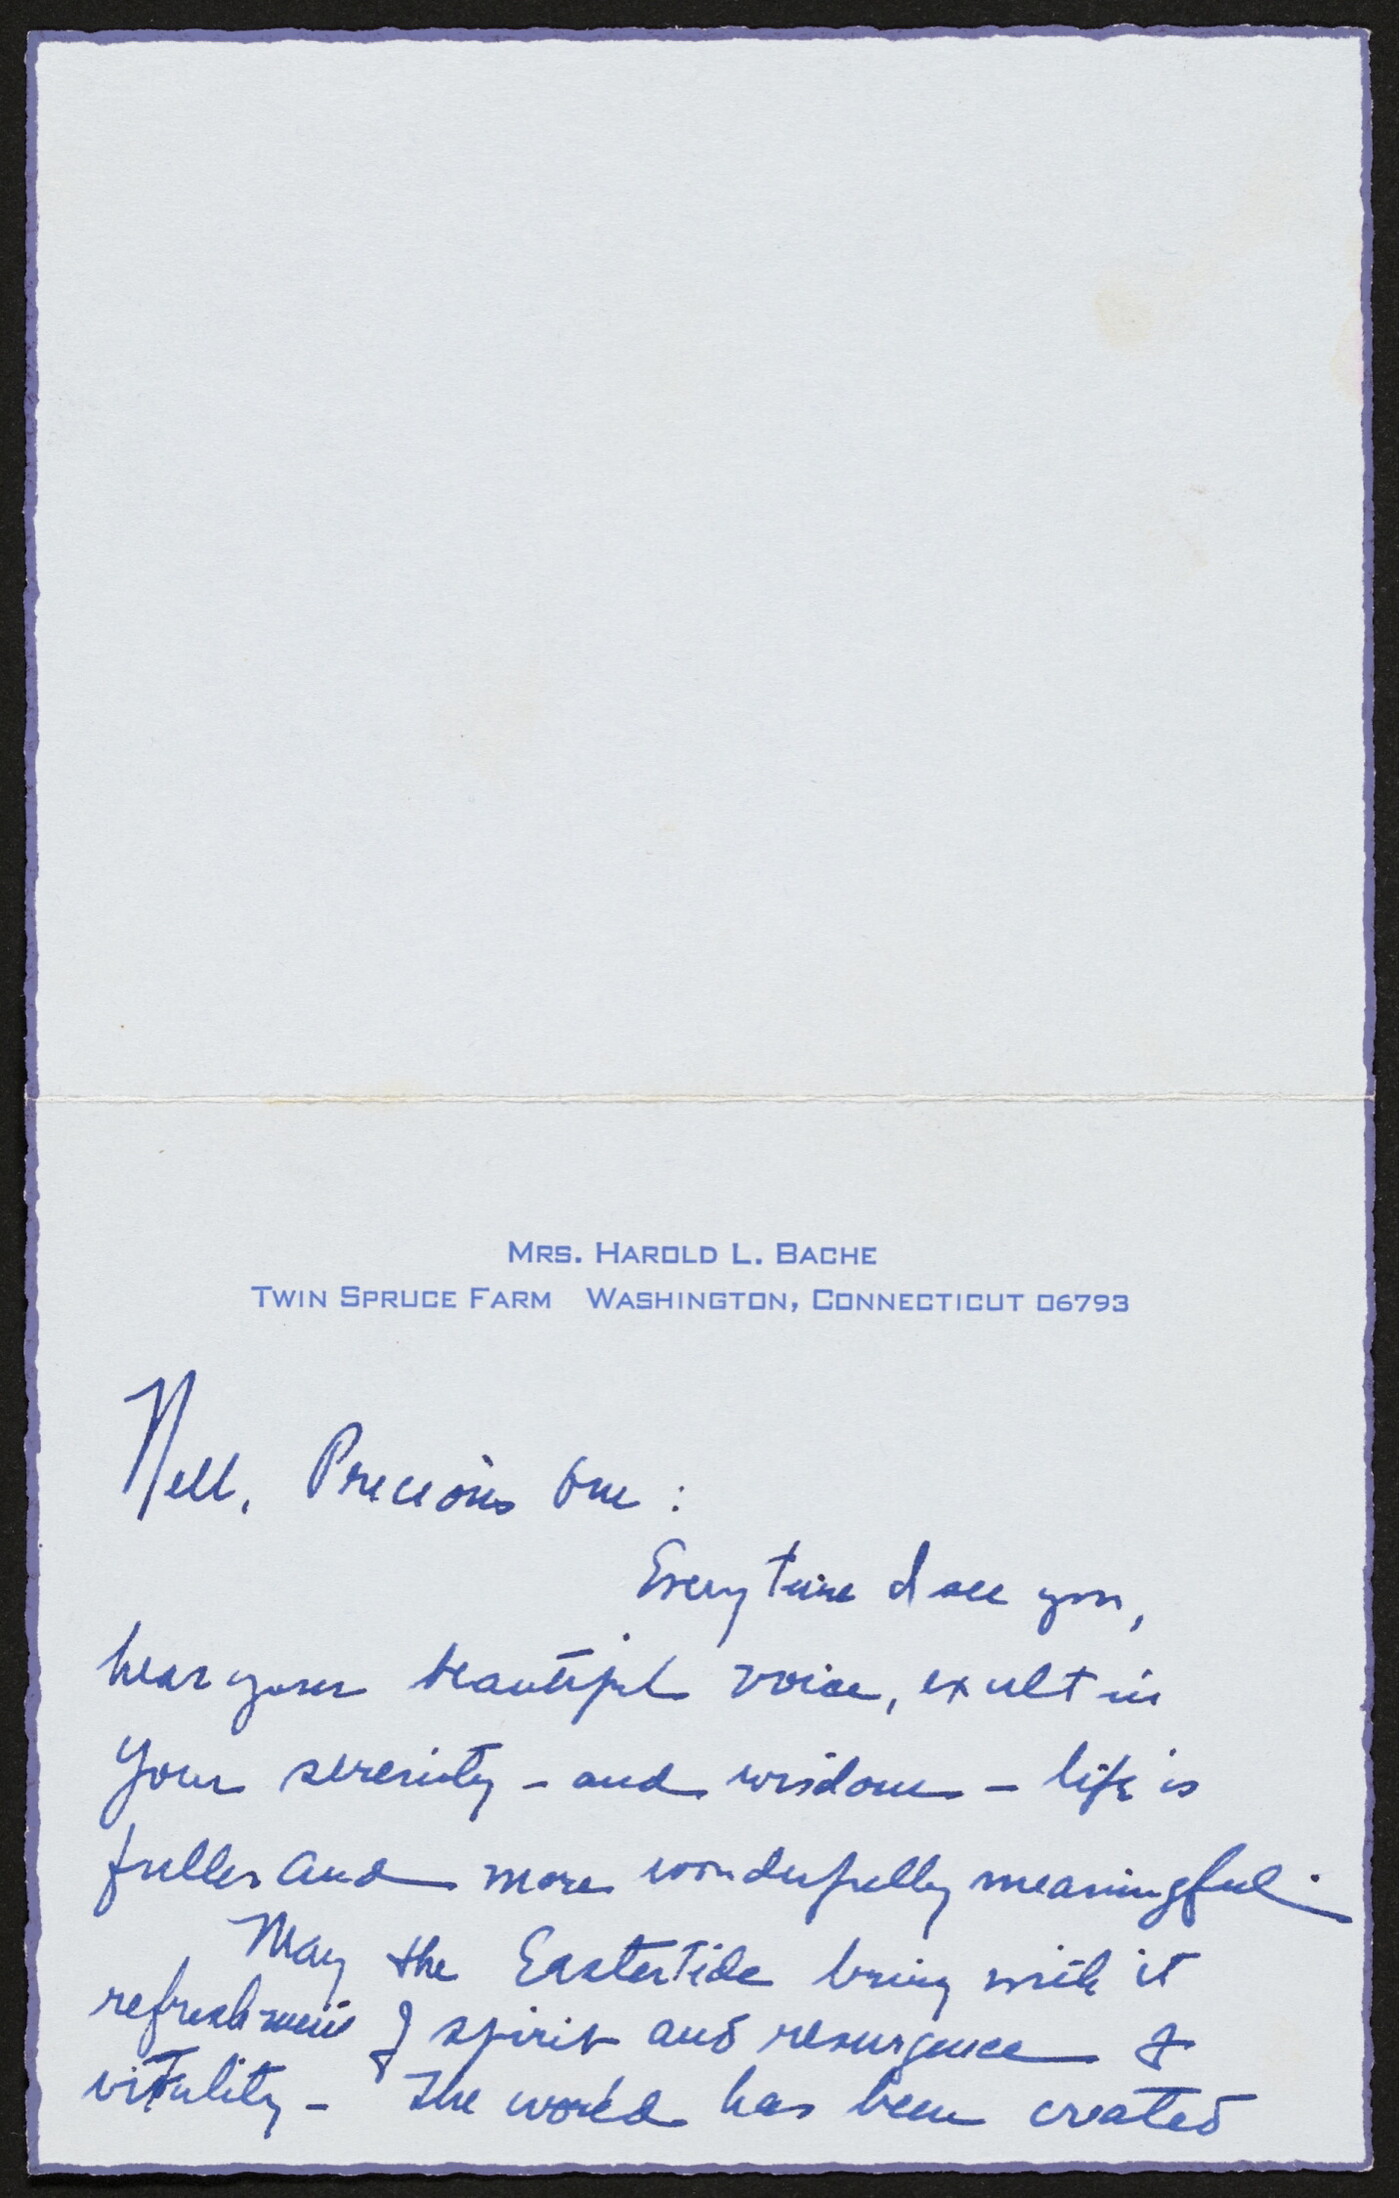 MRS. HAROLD L. BACHE
TWIN SPRUCE FARM WASHINGTON, CONNECTICUT 06793
Nell, Precious One :
Every time I see you,
hear your beautiful voice, exult in
your serenity - and wisdom - life is
fuller and more wonderfully meaningful.
May the Eastertide bring with it
refreshment of spirit and resurgence of
vitality - The world has been created